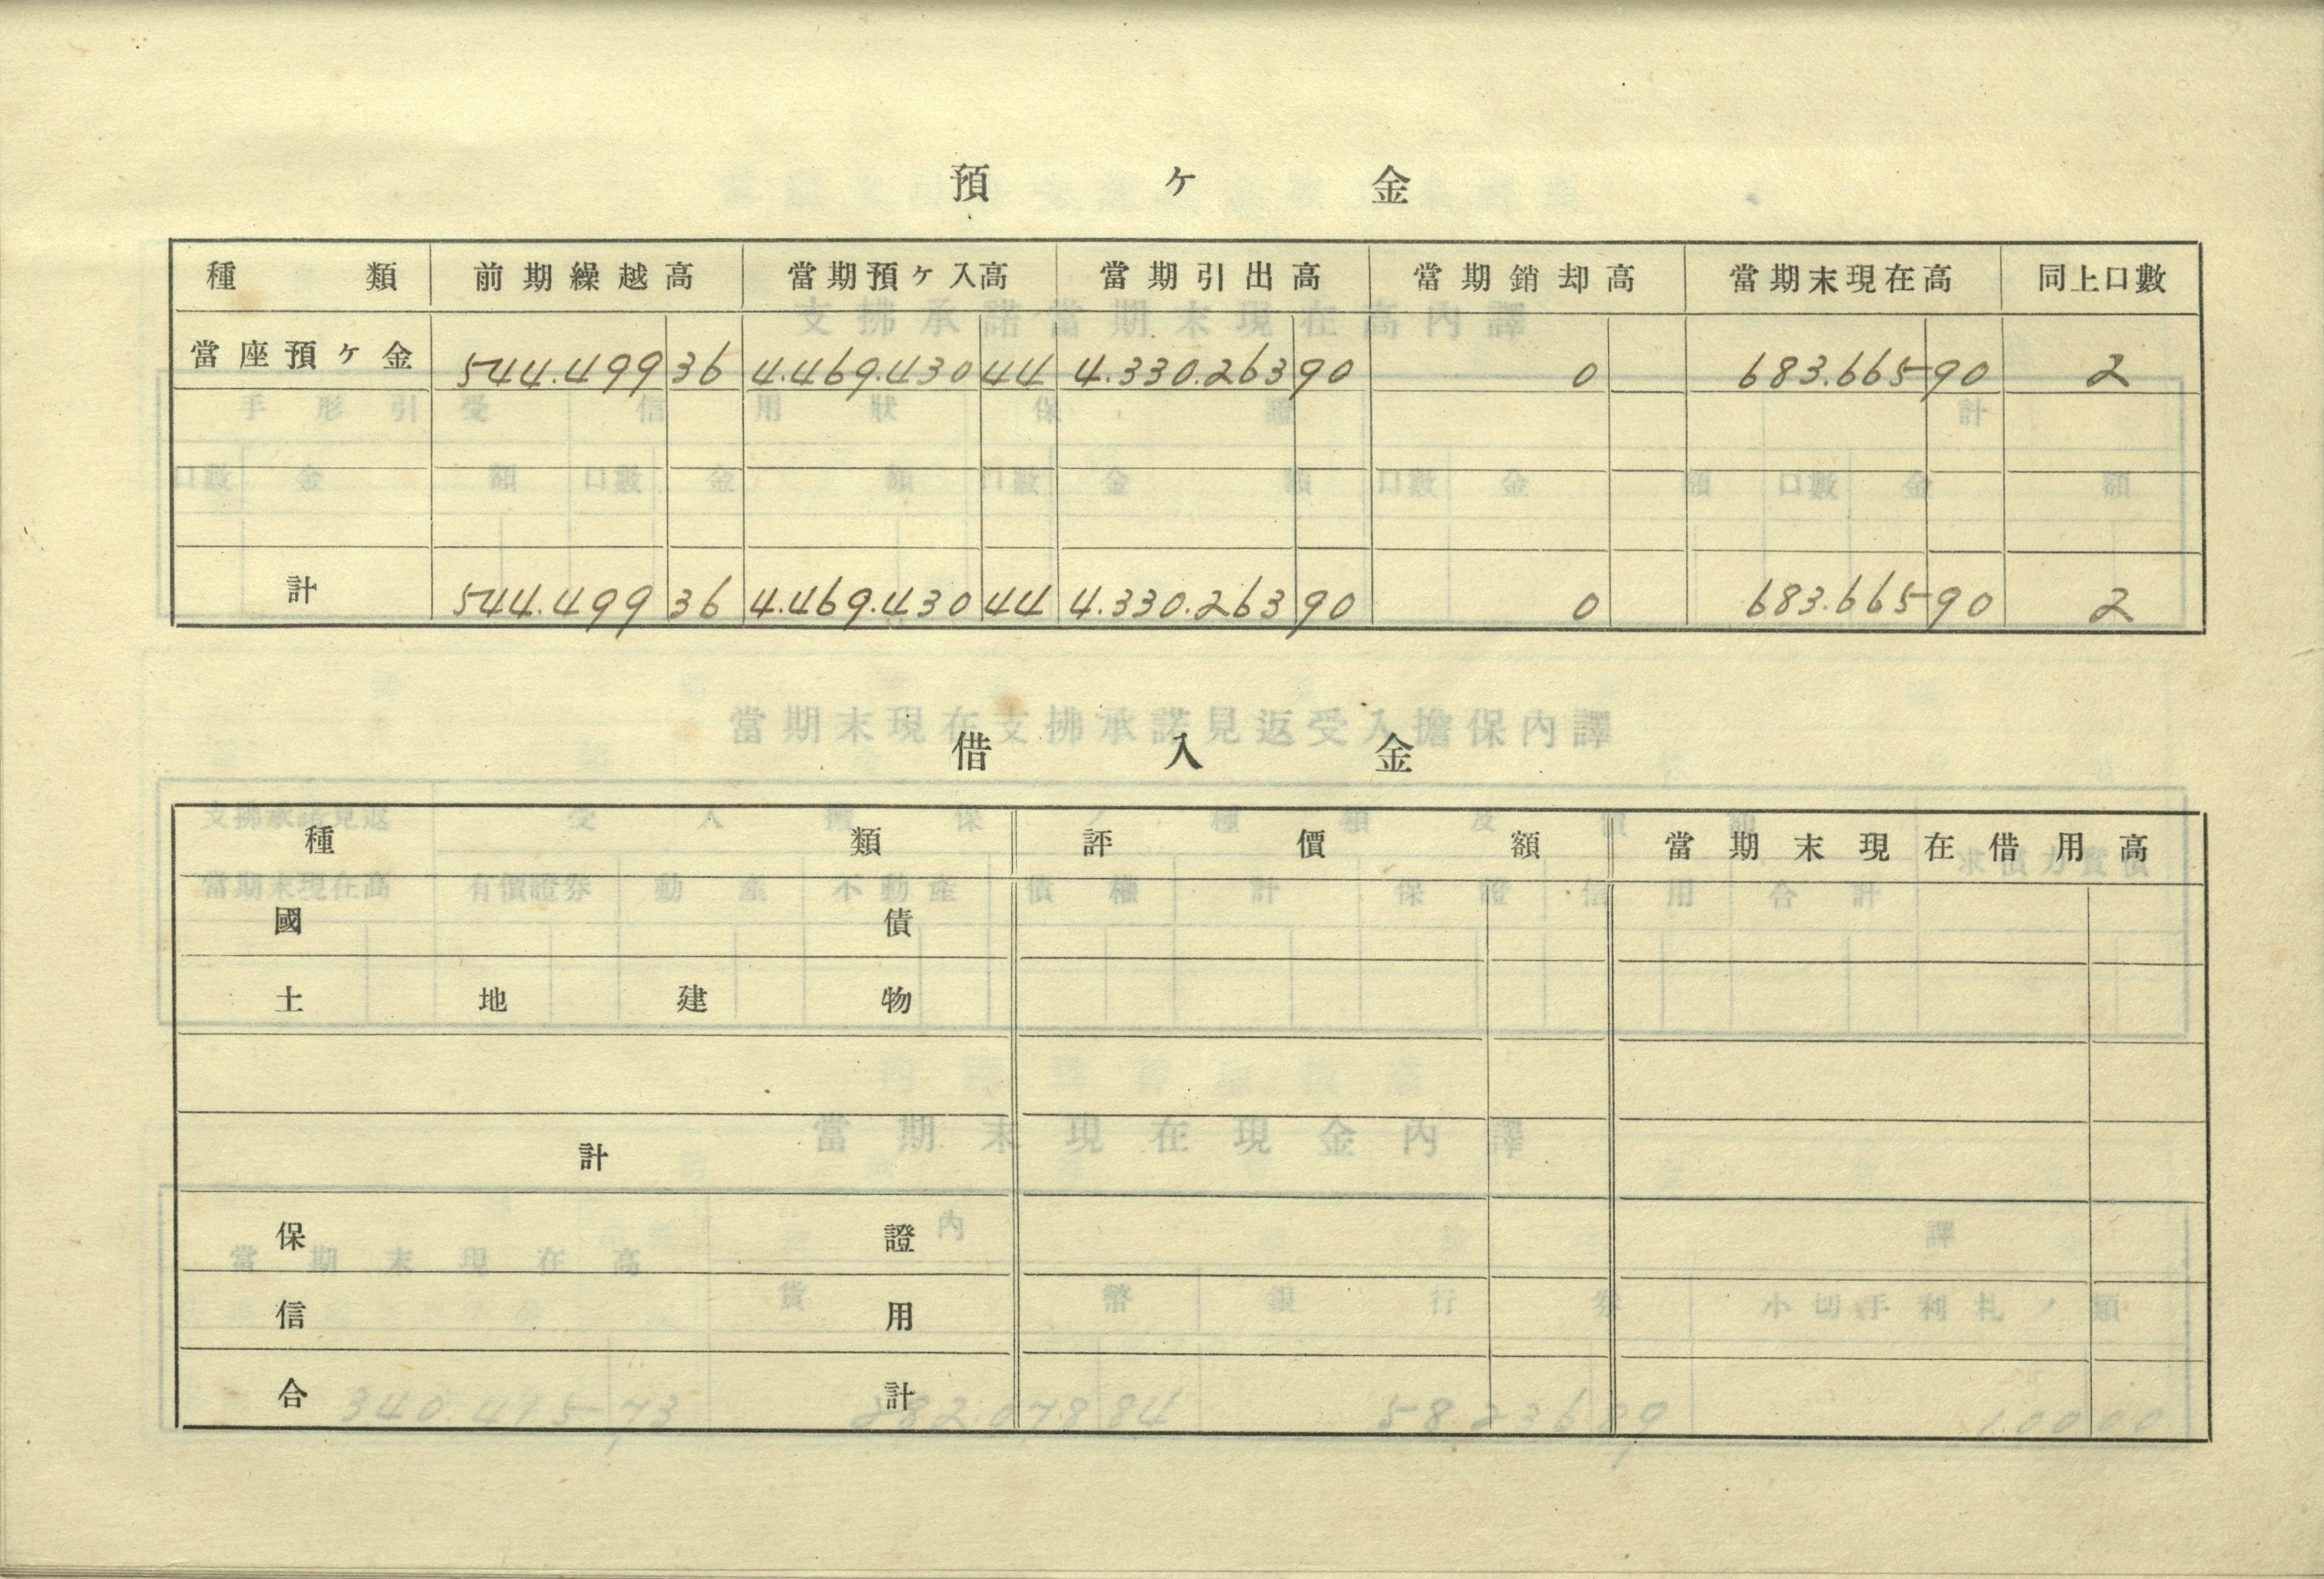 預ケ金
種類 前期繰越高 當期預ケ入高 當期引出高 當期銷却高 當期末現在高 同上口數
當座預ケ金 544.499 36 4.469.430 44 4.330.263 90 0 683.665 90 2
計 544.499 36 4.469.430 44 4.330.263 90 0 683.665 90 2
借入金
種類 評價額 當期末現在借用高
國債
土地建物
計
保證
信用
合計